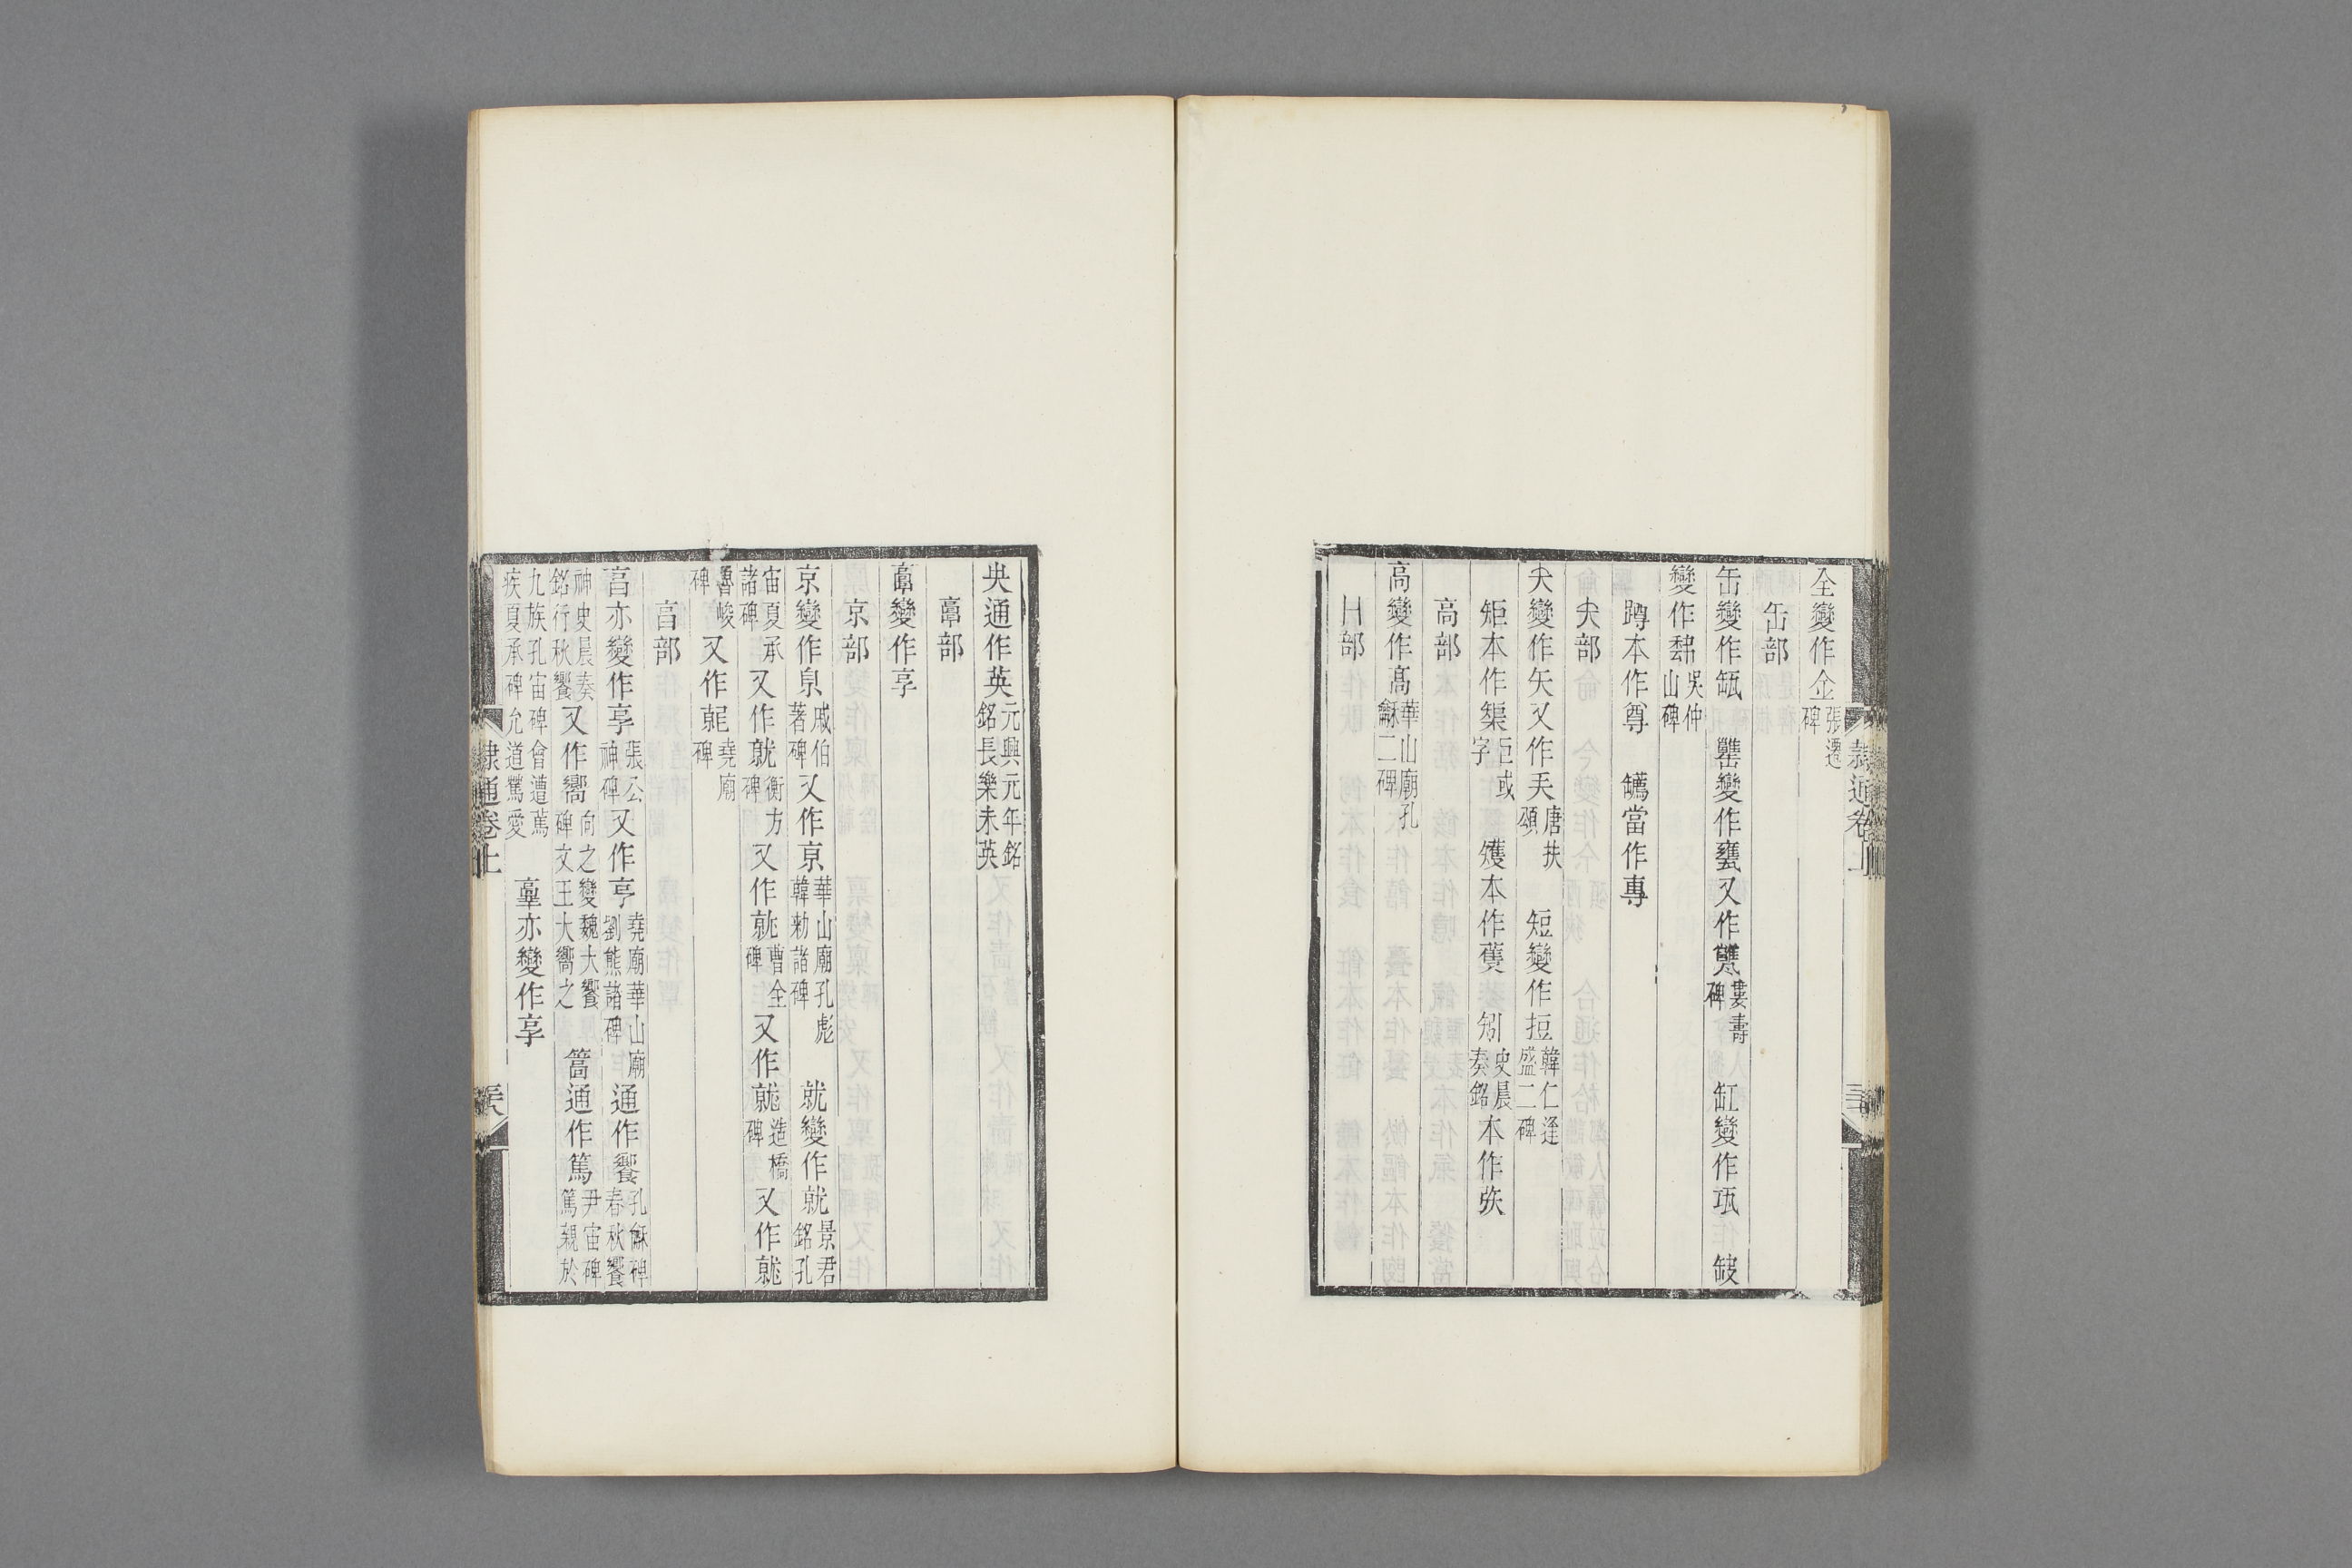 全變作仝張遷碑
缶部
缶變作𦈢 罋變作甕又作㼆婁壽碑 缸變作瓨 鈹
變作𥝠吳仲山碑
蹲本作尊 𦉥當作專
矢部
矢變作矢又作𡗗唐扶頌 短變作𢭃韓仁逢盛二碑
矩本作榘巨或字 矱本作蒦 矧史晨奏銘本作矤
高部
高變作髙華山廟孔龢二碑
冂部
隸通卷上
央通作英元興元年銘銘長樂未英
𩫏部
𩫏變作享
京部
京變作𠅘戚伯著碑又作亰華山廟孔彪韓勑諸碑 就變作就景君銘孔
宙夏承諸碑又作就衡方碑又作就曹全碑又作就造橋碑又作就
魯峻碑又作𡰥堯廟碑
亯部
亯亦變作享張公神碑又作亨堯廟華山廟劉熊諸碑通作饗孔龢碑春秋饗
神史晨奏銘行秋饗又作嚮向之變魏大饗碑文王大嚮之 䈞通作篤尹宙碑篤親於
九族孔宙碑會遭篤疾夏承碑允道篤愛 𦎫亦變作享
隸通卷上